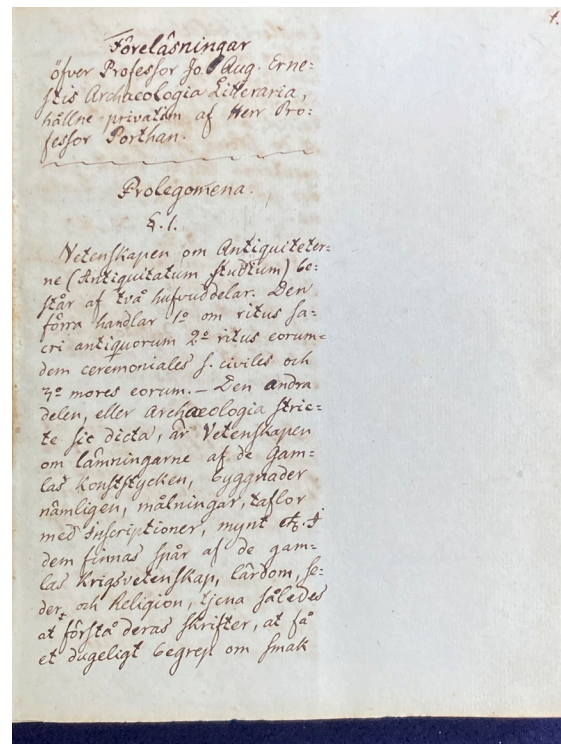 1.
Föreläsningar
öfver Professor Jo. Aug. Erne=
stis Archaeologia Literaria,
hållne privatim af Herr Pro=
fessor Porthan.
Prolegomena.
§. 1.
Vetenskapen om Antiquiteter=
ne (Antiquitatum studium) be=
står af två hufvuddelar. Den
förra handlar 1º om ritus sa=
cri antiquorum 2º ritus eorum=
dem ceremoniales s. civiles och
3º mores eorum. — Den andra
delen, eller Archaeologia stric=
te sic dicta, är Vetenskapen
om lämningarne af de Gam=
las konststycken, byggnader
nämligen, målningar, taflor
med Inscriptioner, mynt &c. I
dem finnas spår af de gam=
las krigsvetenskap, lärdom, se=
der, och Religion, tjena således
at förstå deras skrifter, at få
et dugeligt begrep om smak